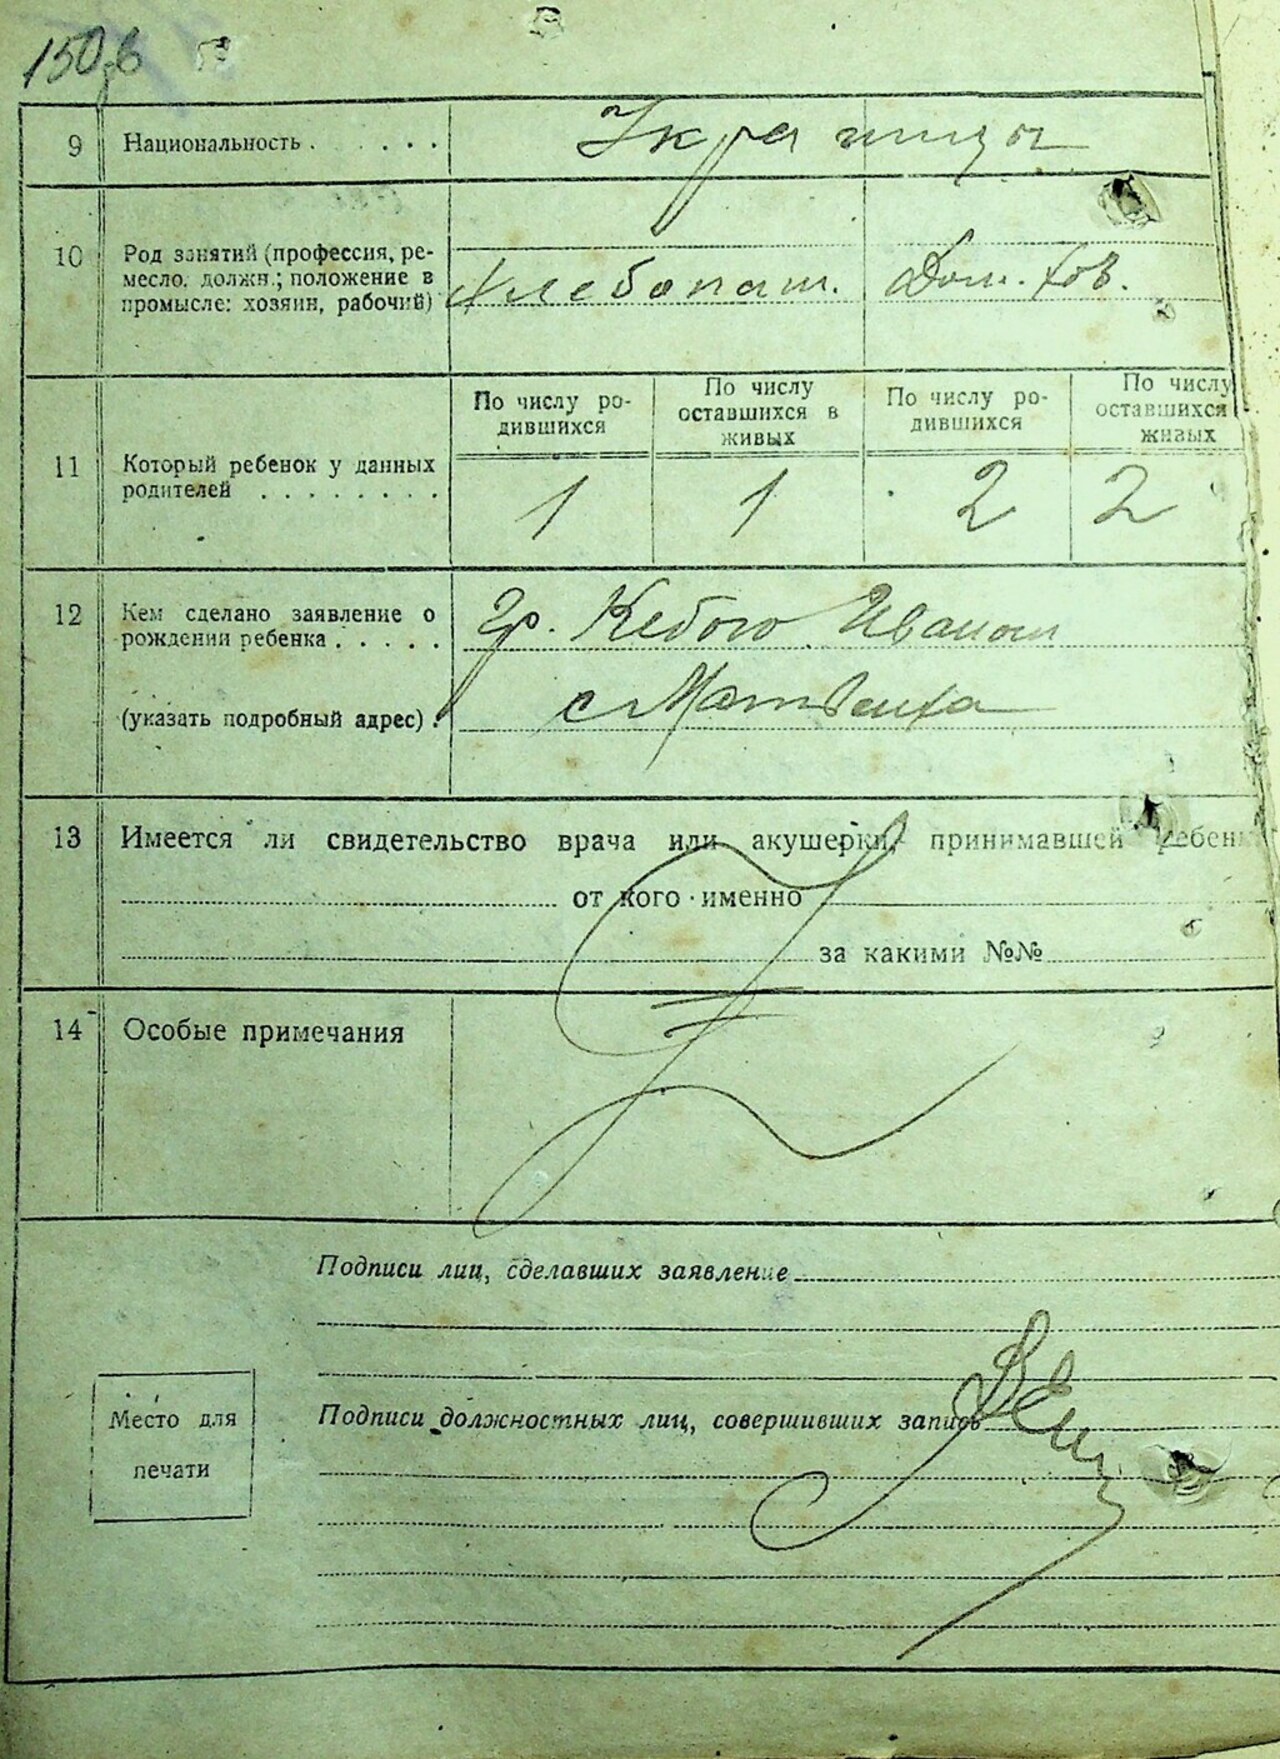 150зв
9 Национальность . . . . . Украинцы
10 Род занятий (профессия, ре-
месло, должн.; положение в
промысле: хозяин, рабочий)
Хлебопаш. Дом. хоз.
11 Который ребенок у данных
родителей . . . . . . . .
По числу ро-
дившихся
По числу
оставшихся в
живых
По числу ро-
дившихся
По числу
оставшихся
живых
1 1 2 2
12 Кем сделано заявление о
рождении ребенка . . . . .
(указать подробный адрес) .
гр. Кебою Иваном
с Матвеиха
13 Имеется ли свидетельство врача или акушерки, принимавшей ребен
от кого именно
за какими №№
14 Особые примечания
Подписи лиц, сделавших заявление
Подписи должностных лиц, совершивших запись
Место для
печати